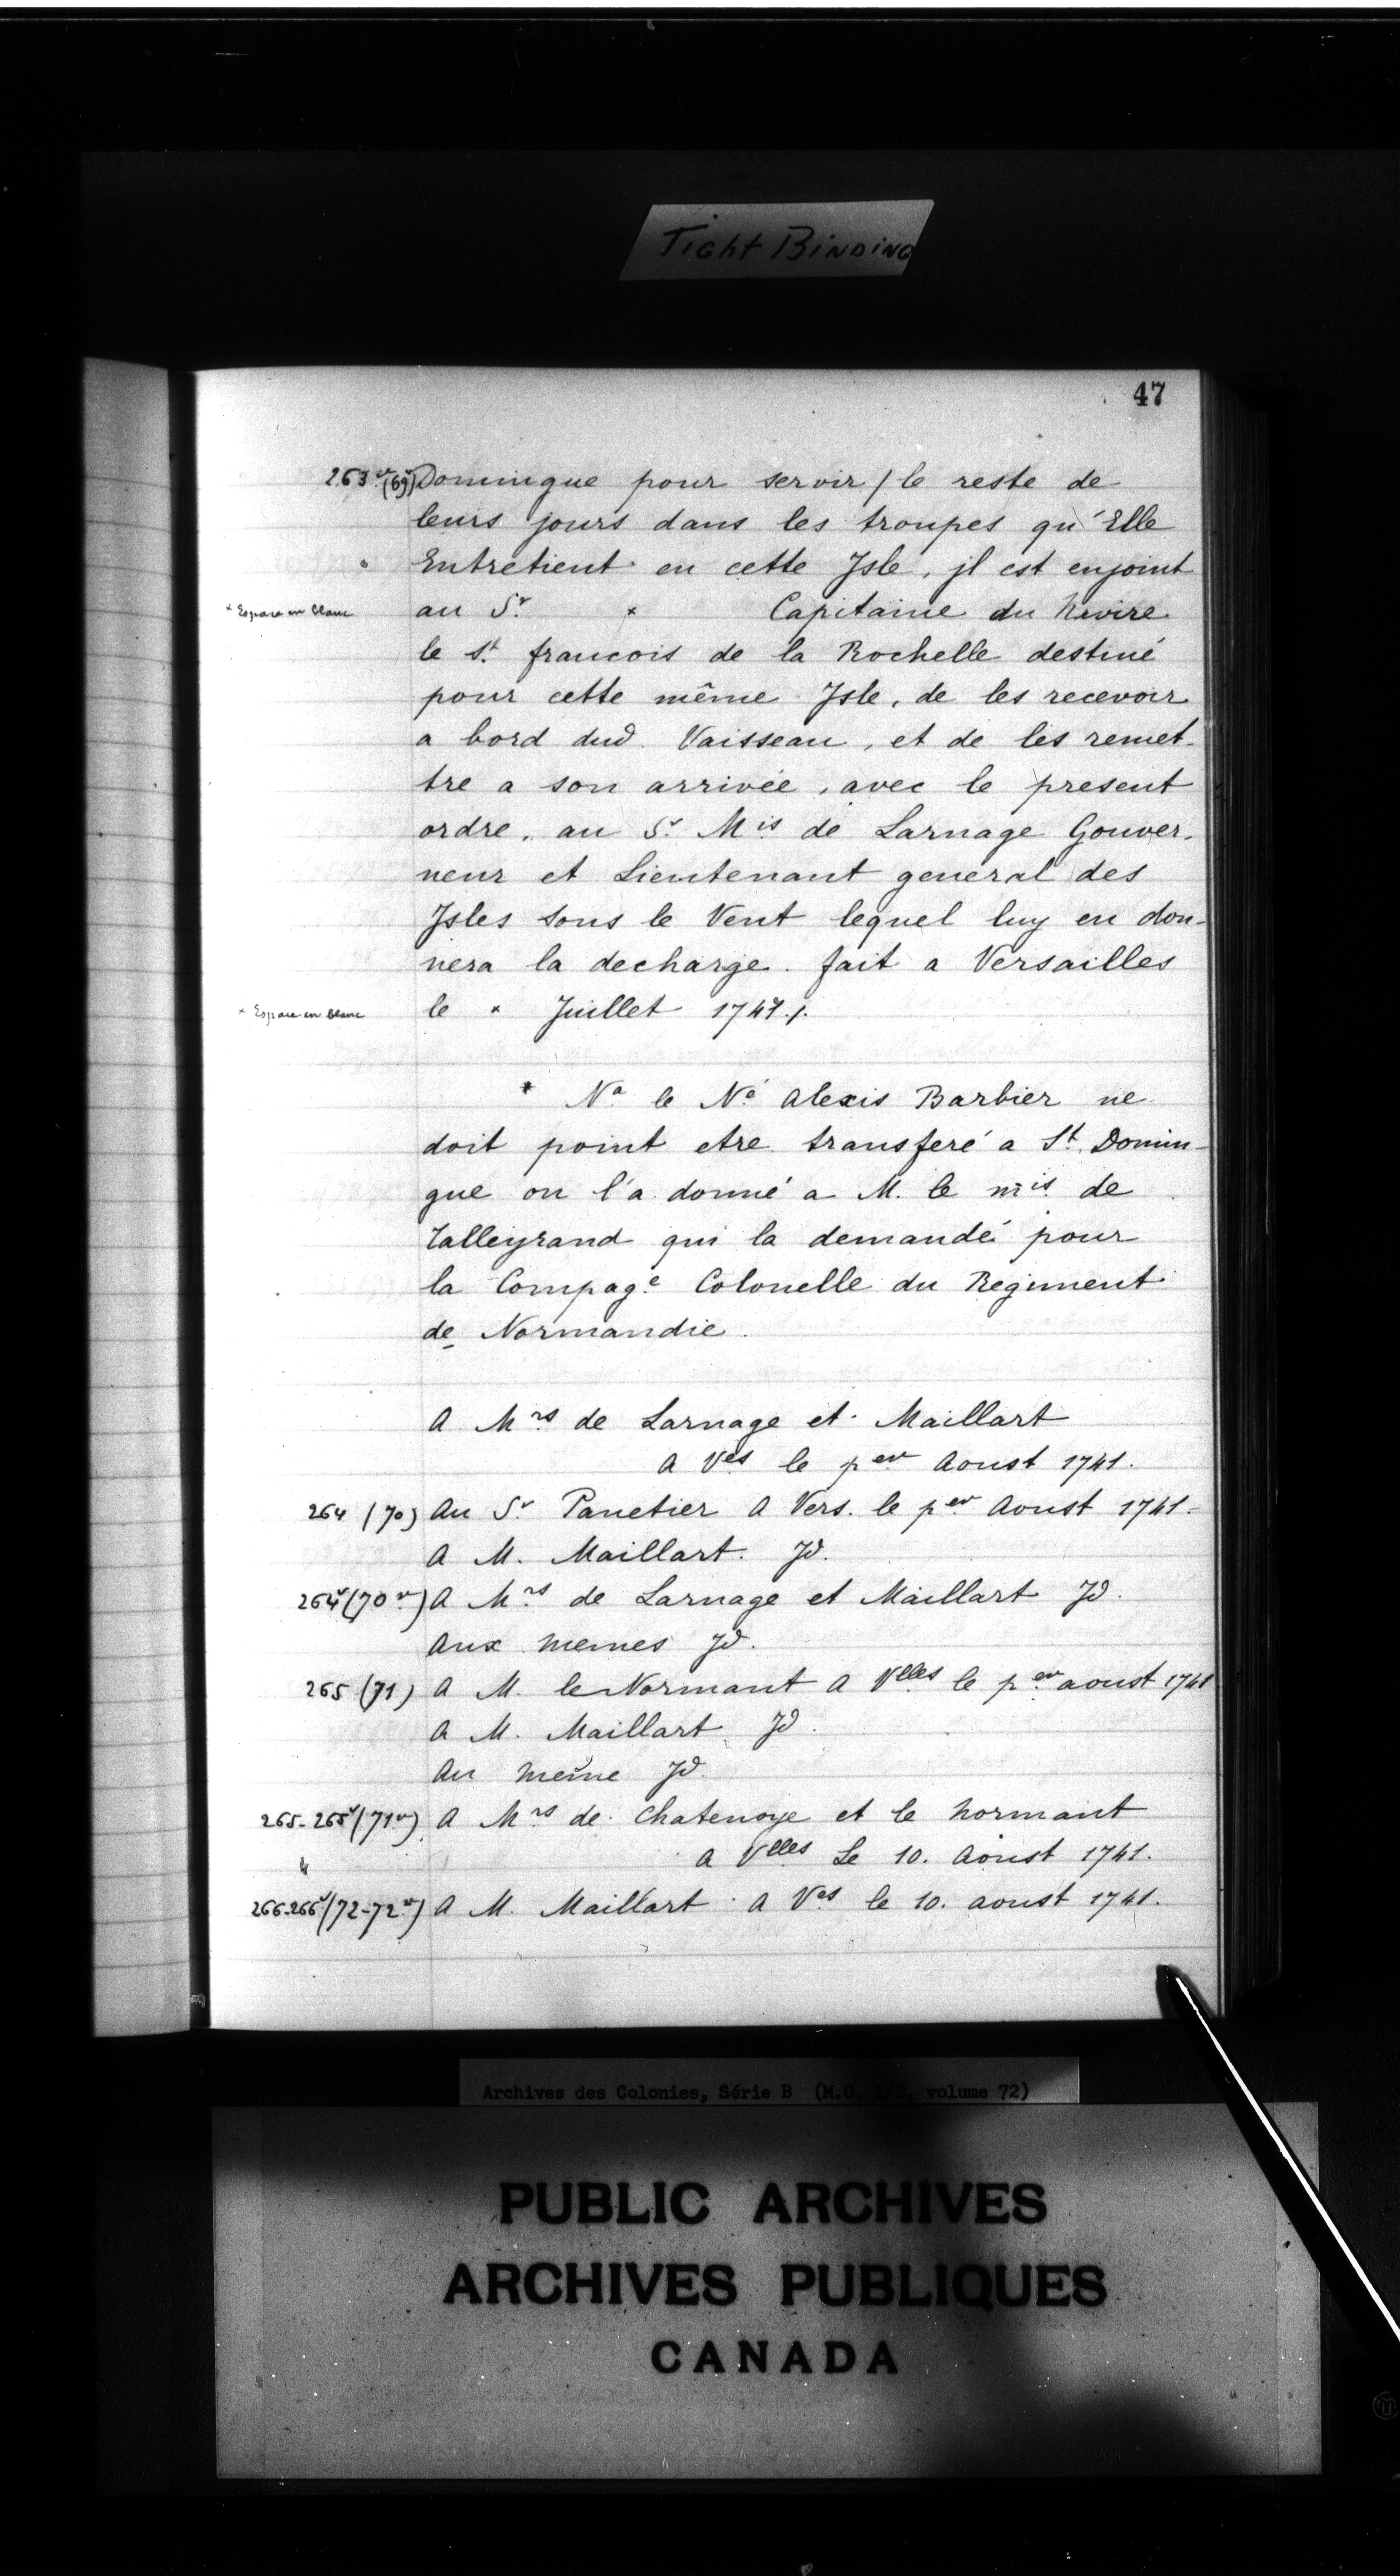 Tight Binding
47
263v. (69v) Domingue pour servir / le reste de
leurs jours dans les troupes qu'Elle
Entretient en cette Jsle, jl est enjoint
* Espace en blanc au Sr. * Capitaine du Navire
le St. francois de la Rochelle destiné
pour cette même Jsle, de les recevoir
a bord dud. Vaisseau, et de les remet-
tre a son arrivée, avec le present
ordre, au Sr. Mis de Larnage Gouver-
neur et Lieutenant general des
Jsles sous le Vent lequel luy en don-
nera la decharge. fait a Versailles
* Espace en blanc le * Juillet 1741./.
* Na le Né Alexis Barbier ne
doit point etre transferé a St. Domin-
gue on l'a donné a M. le mis de
Talleyrand qui la demandé pour
la Compage Colonelle du Regiment
de Normandie.
A Mrs de Larnage et Maillart
A Ves le per Aoust 1741.
264 (70) Au Sr Panetier A Vers. le per Aoust 1741.
A M. Maillart. Jd.
264v (70v) A Mrs de Larnage et Maillart Jd.
Aux memes Jd.
265 (71) A M. le Normant A Vlles le per aoust 1741
A M. Maillart Jd.
Au même Jd.
265-265v (71v) A Mrs de Chatenoye et le normant
a Vlles Le 10. Aoust 1741.
266-266v (72-72v) A M. Maillart A Ves le 10. aoust 1741.
Archives des Colonies, Série B (M.G. 1/2, volume 72)
PUBLIC ARCHIVES
ARCHIVES PUBLIQUES
CANADA